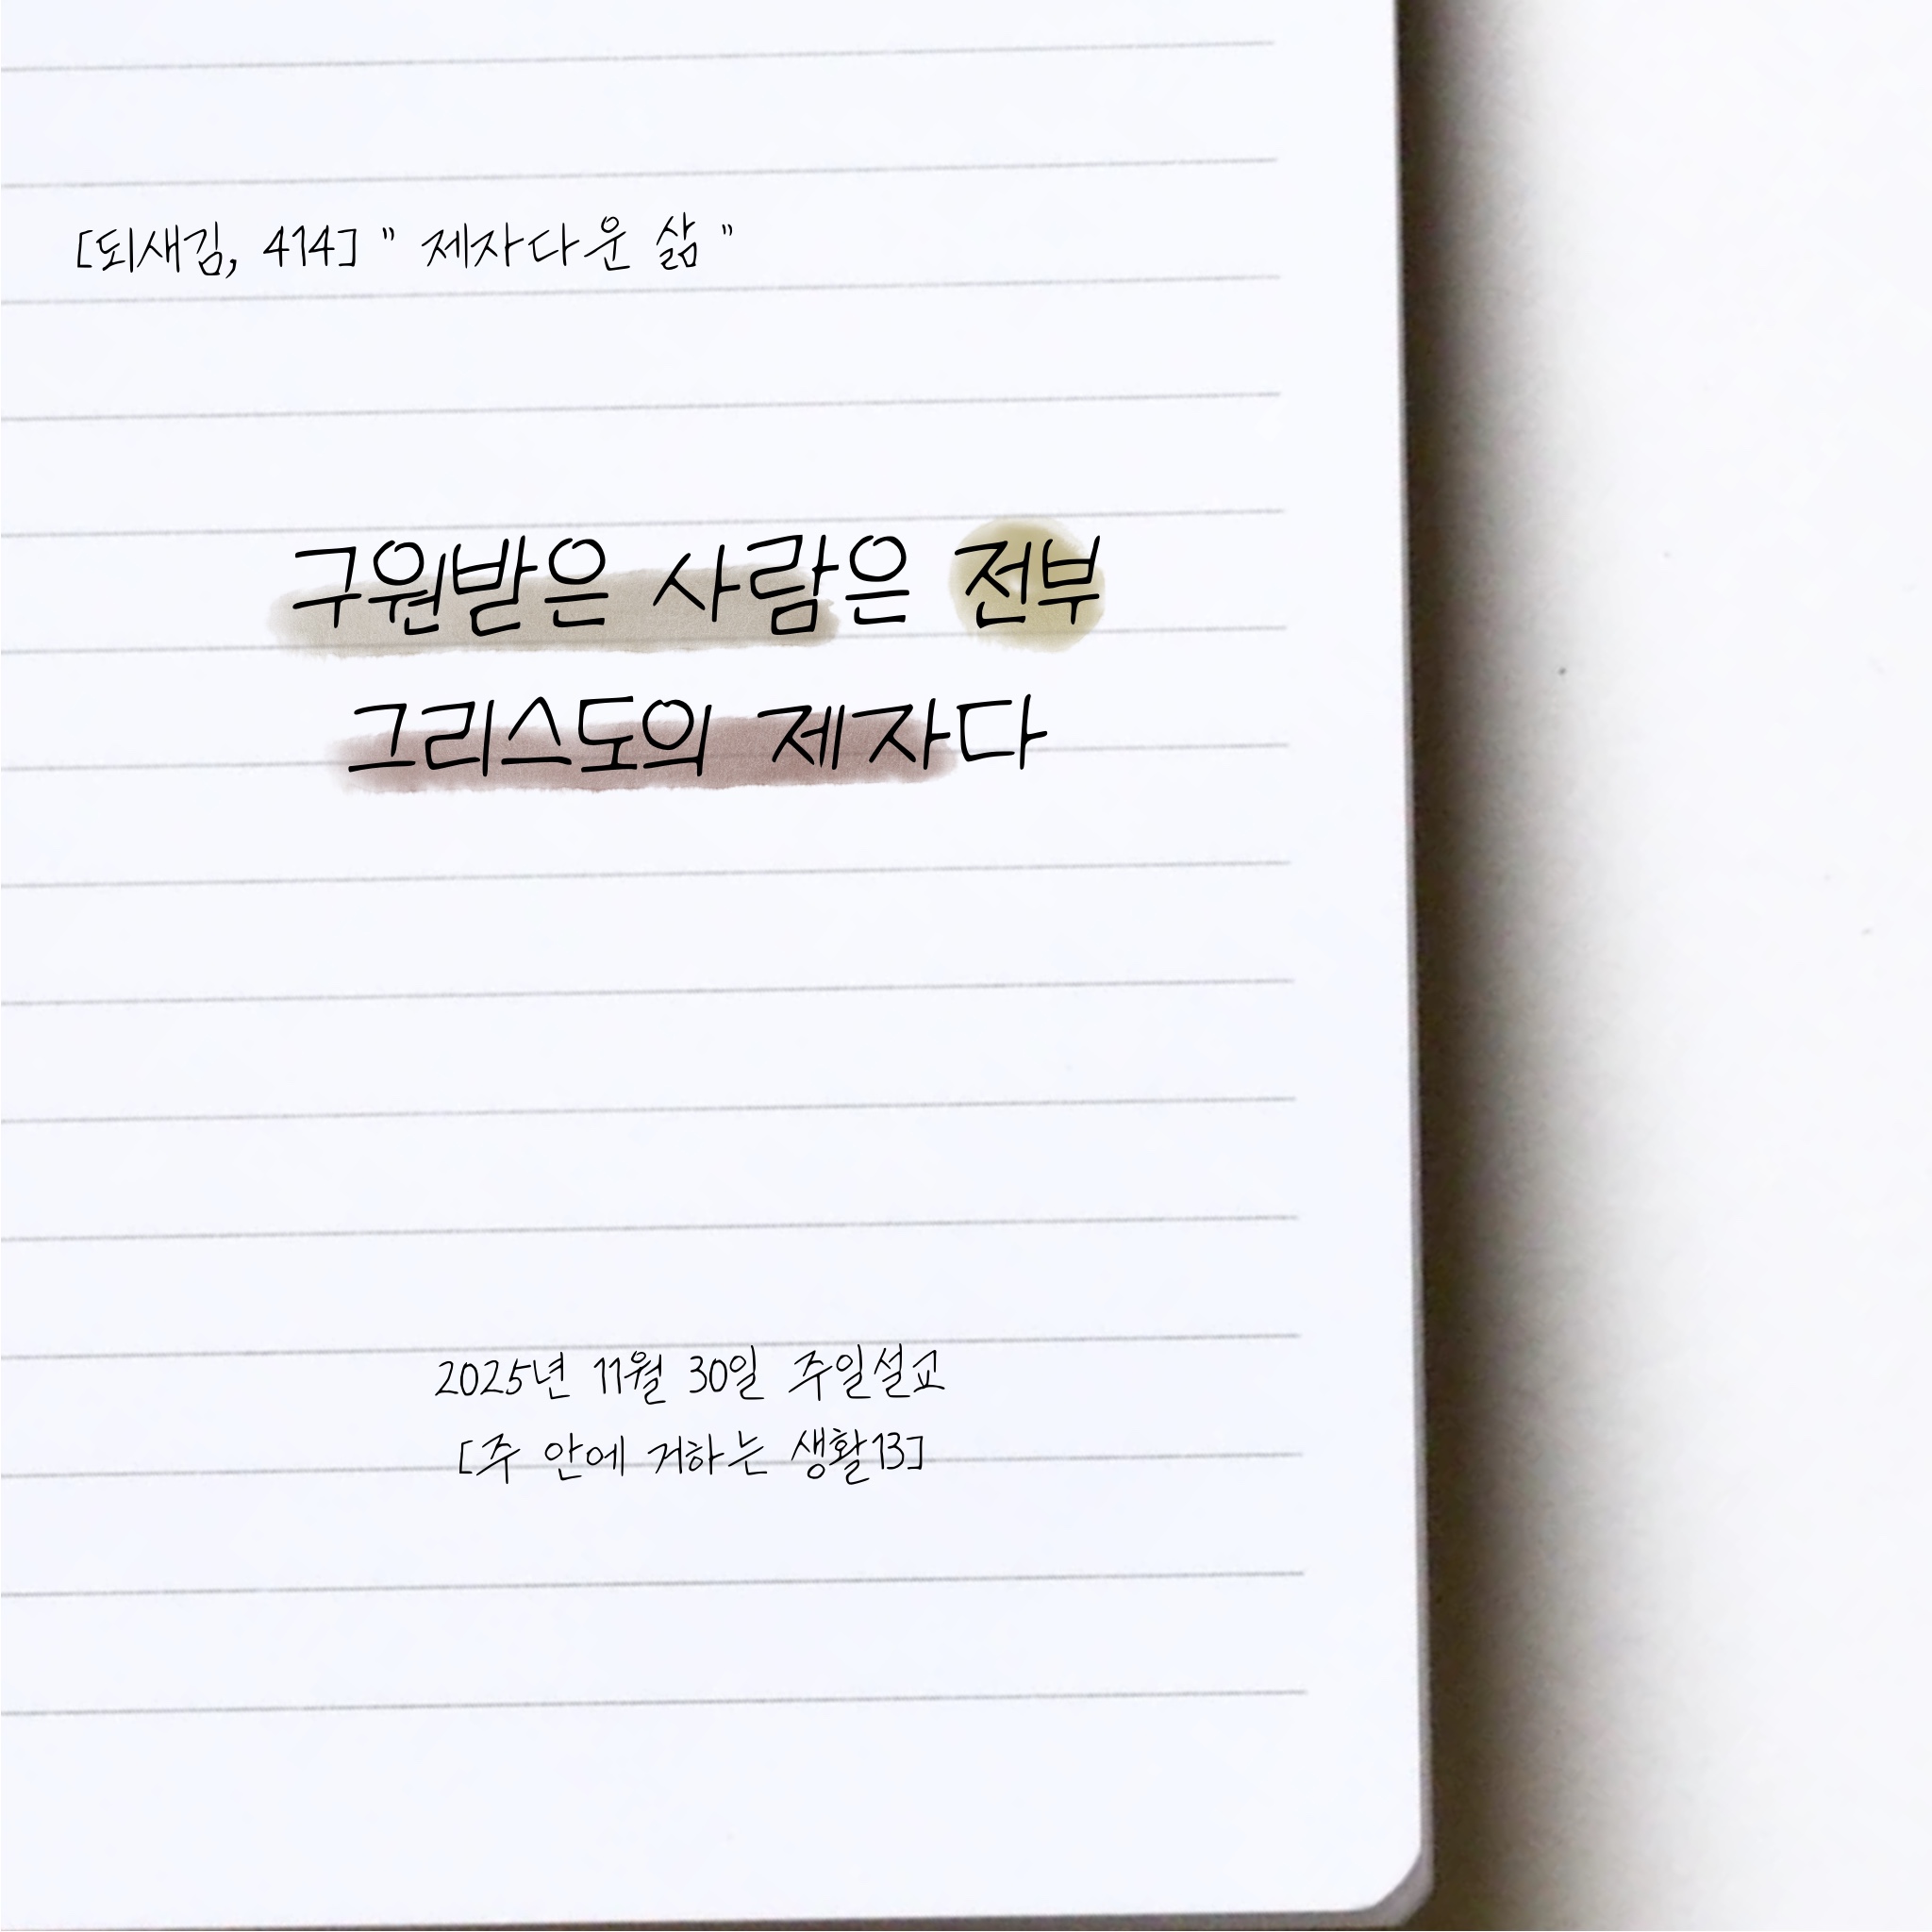 [되새김, 414] " 제자다운 삶 "
구원받은 사람은 전부
그리스도의 제자다
2025년 11월 30일 주일설교
[주 안에 거하는 생활13]